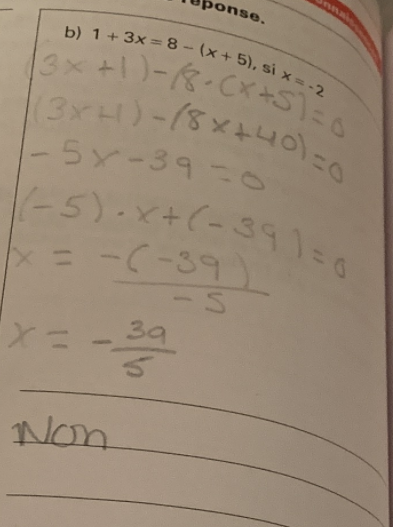 réponse.
b) 1 + 3x = 8 − (x + 5), si x = -2
(3x+1)-(8·(x+5)=0
(3x+1)-(8x+40)=0
-5x-39=0
(-5)·x+(-39)=0
x = -(-39)
-5
x = - 39
5
Non